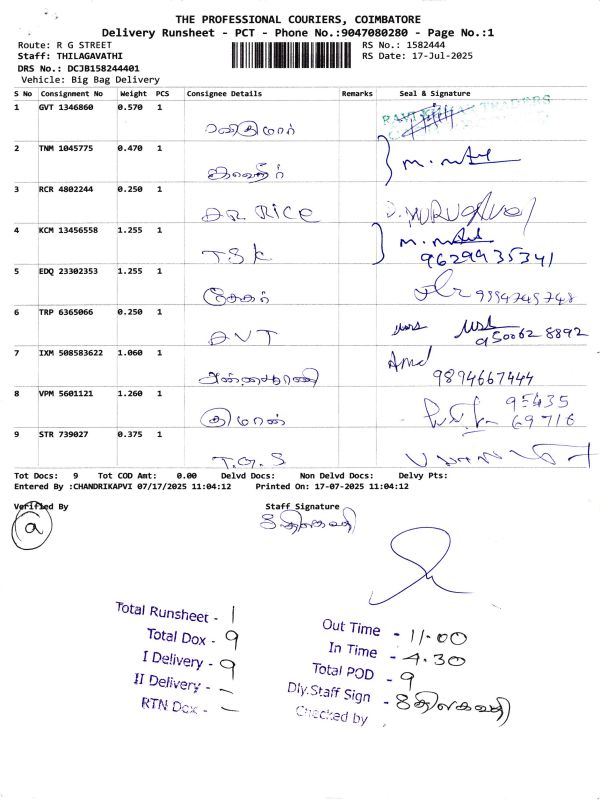 THE PROFESSIONAL COURIERS, COIMBATORE
Delivery Runsheet - PCT - Phone No.:9047080280 - Page No.:1
Route: R G STREET RS No.: 1582444
Staff: THILAGAVATHI RS Date: 17-Jul-2025
DRS No.: DCJB158244401
Vehicle: Big Bag Delivery
S No Consignment No Weight PCS Consignee Details Remarks Seal & Signature
1 GVT 1346860 0.570 1
2 TNM 1045775 0.470 1
3 RCR 4802244 0.250 1 A.R. RICE D. MURUGAVEl
4 KCM 13456558 1.255 1 T.S.K 9629935341
5 EDQ 23302353 1.255 1 சேகர்
6 TRP 6365066 0.250 1 A V T 950062 8892
7 IXM 508583622 1.060 1 அன்னபூரணி 9894667444
8 VPM 5601121 1.260 1 95435
69716
9 STR 739027 0.375 1 T.G.S
Tot Docs: 9 Tot COD Amt: 0.00 Delvd Docs: Non Delvd Docs: Delvy Pts:
Entered By :CHANDRIKAPVI 07/17/2025 11:04:12 Printed On: 17-07-2025 11:04:12
Verified By Staff Signature
a
Total Runsheet - 1
Total Dox - 9
I Delivery - 9
II Delivery - –
RTN Dox - –
Out Time - 11.00
In Time - 4.30
Total POD - 9
Dly.Staff Sign -
Checked by